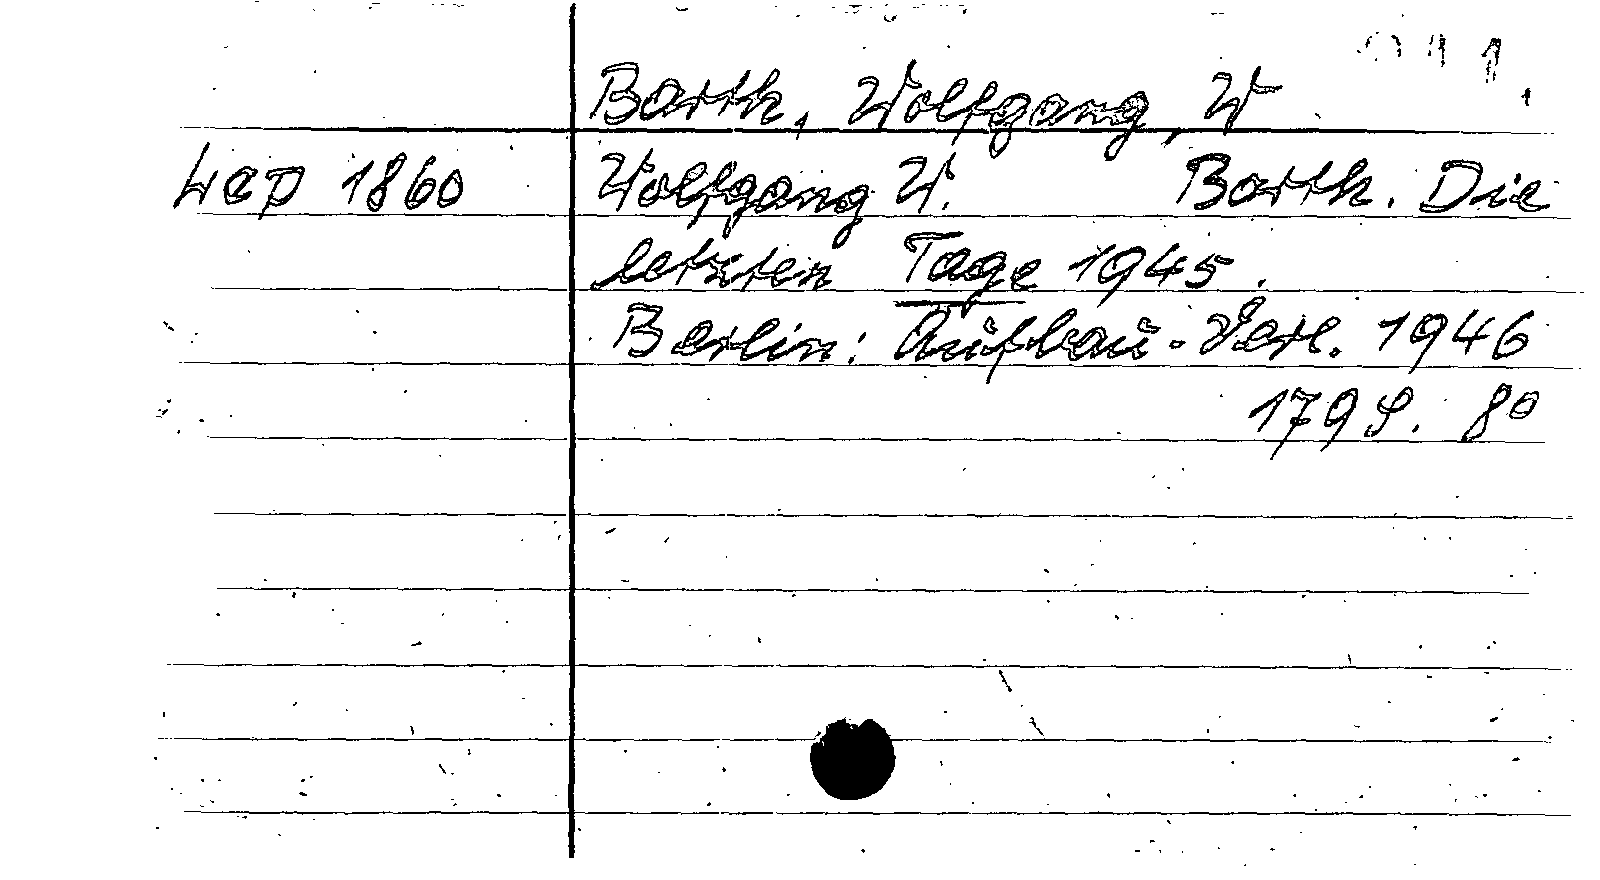 Barth, Wolfgang, W
Lep 1860 Wolfgang W. Barth. Die
letzten Tage 1945.
Berlin: Aufbau-Verl. 1946
179 S. 8°